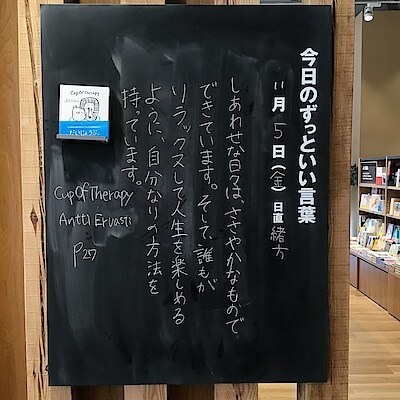 今日のずっといい言葉
11月5日(金) 日直 緒方
しあわせな日々は、ささやかなもので
できています。そして、誰もが
リラックスして人生を楽しめる
ように、自分なりの方法を
持っています。
Cup Of Therapy
Antti Ervasti
P27
Cup Of Therapy
だいじょうぶ。